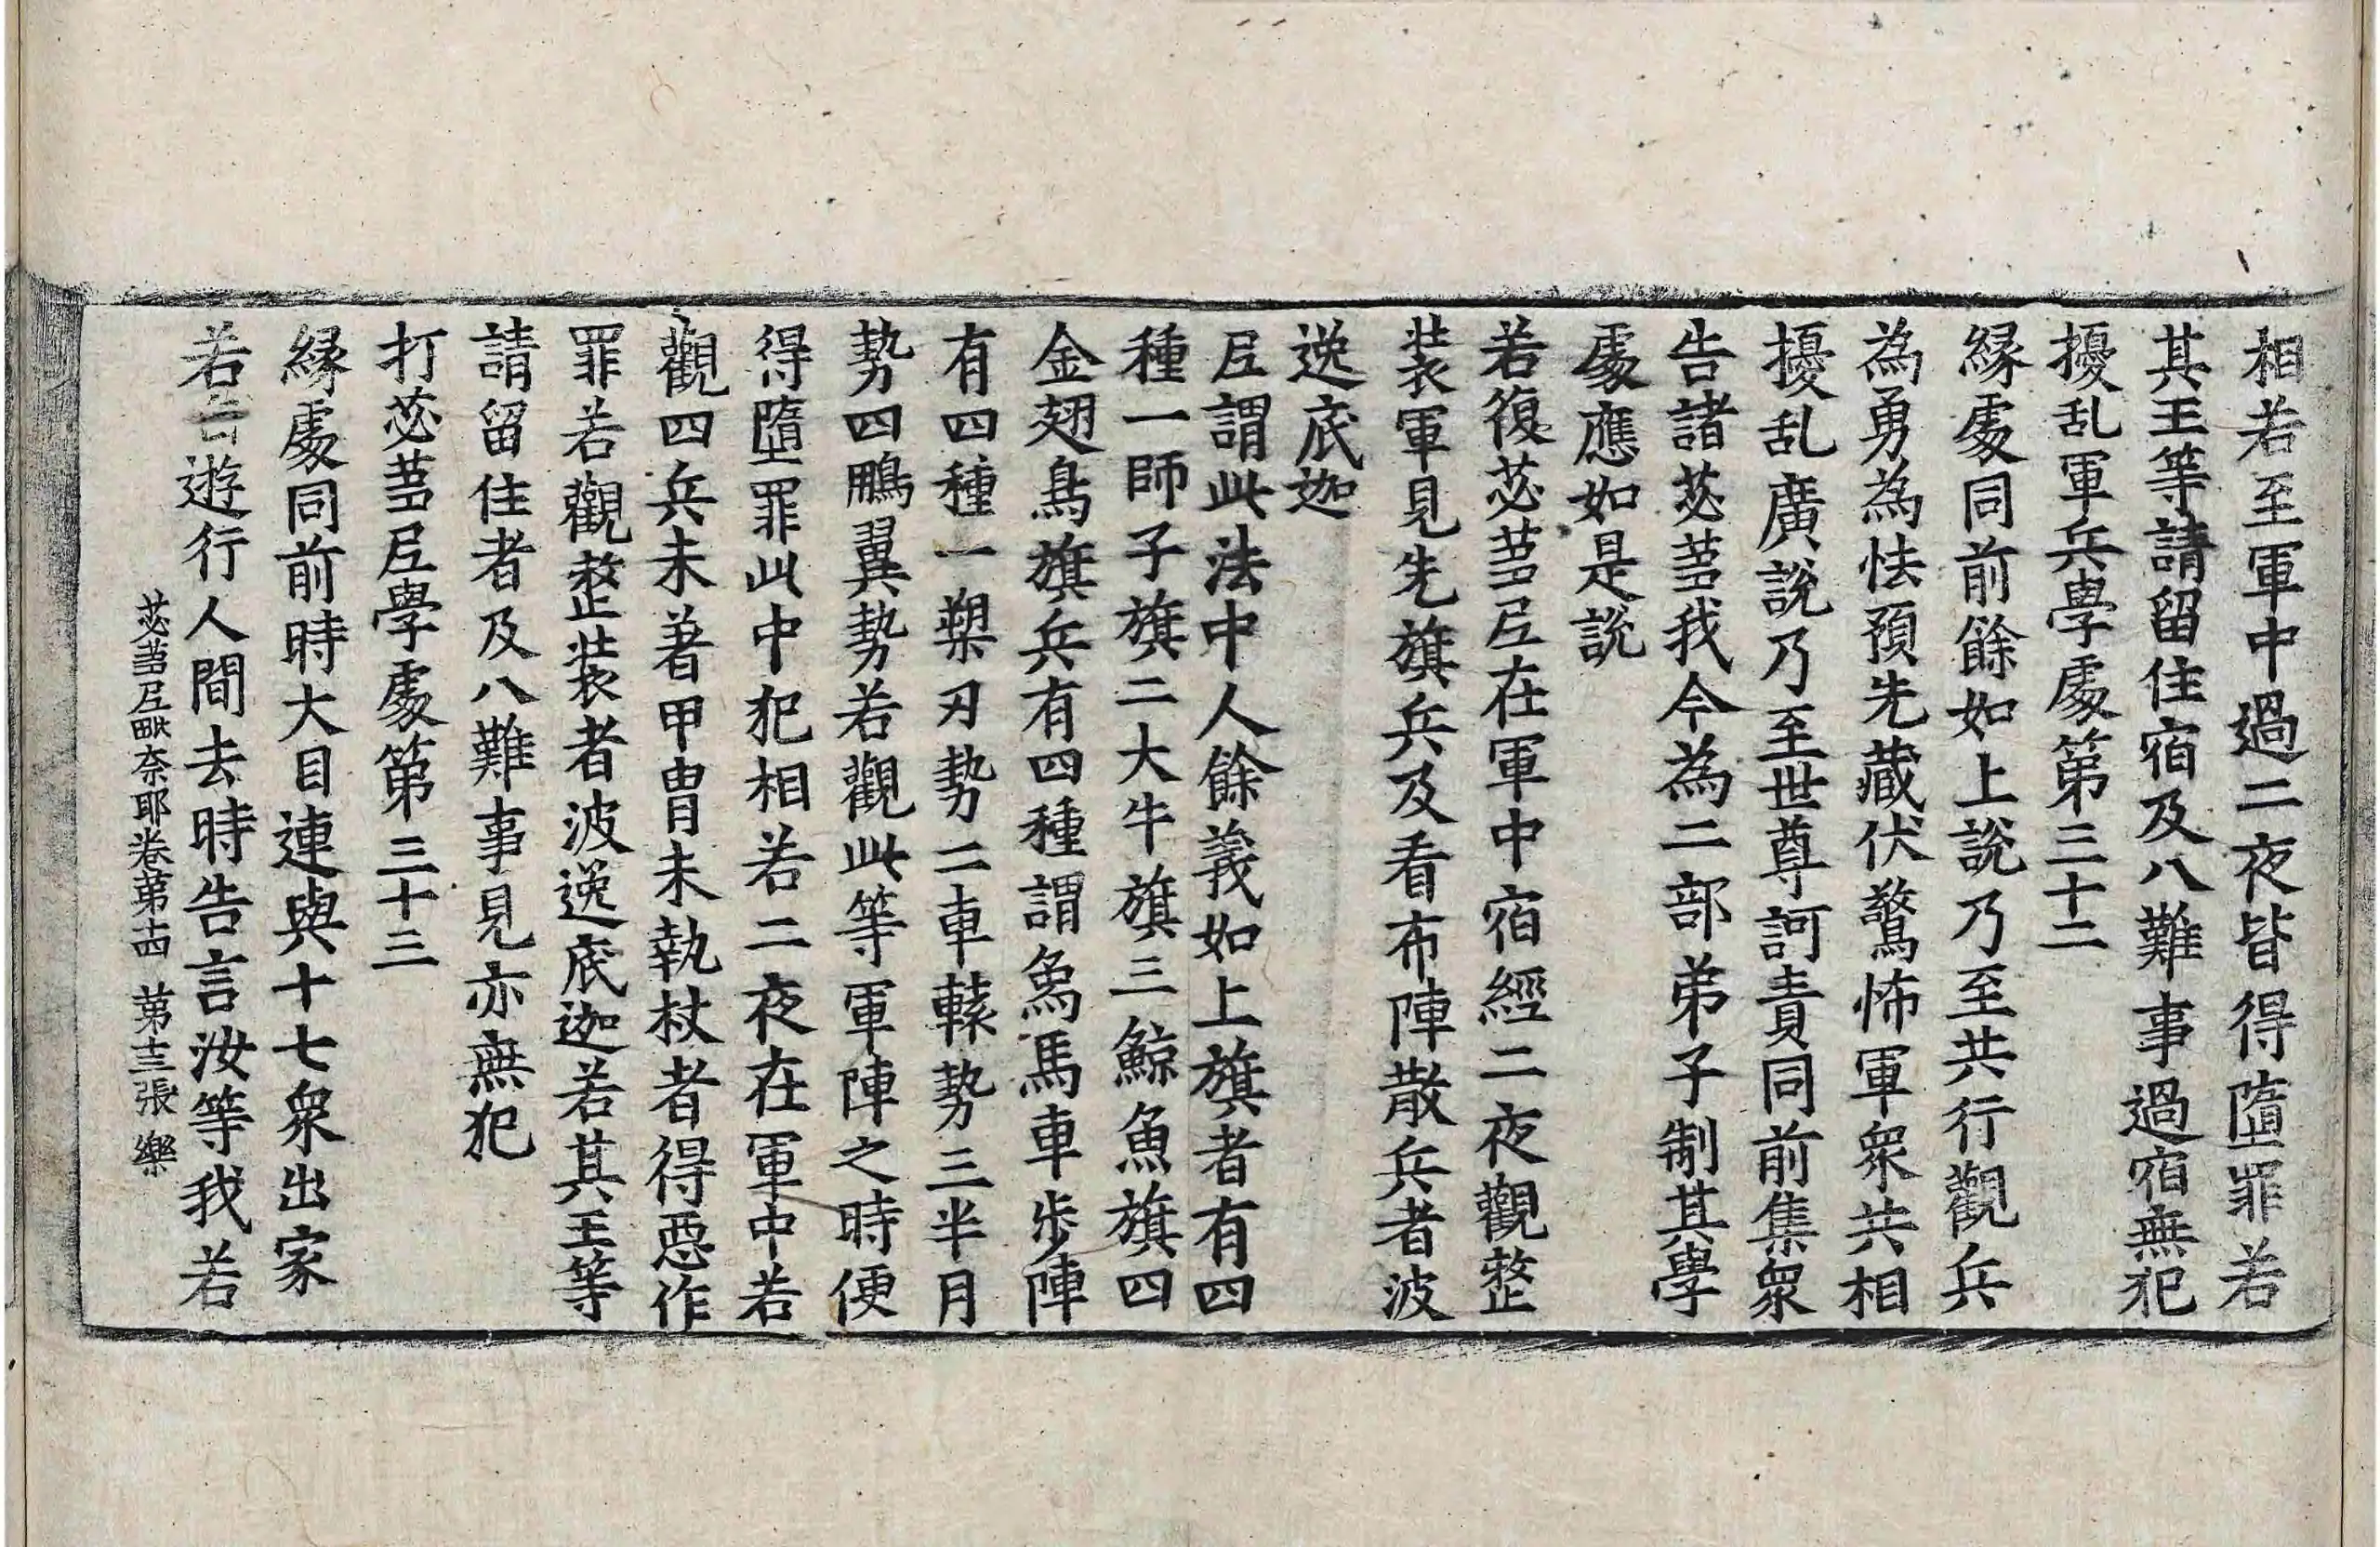 相若至軍中過二夜皆得墮罪若
其王等請留住宿及八難事過宿無犯
擾乱軍兵學處第三十二
緣處同前餘如上說乃至共行觀兵
為勇為怯預先藏伏驚怖軍眾共相
擾乱廣說乃至世尊訶責同前集眾
告諸苾蒭我今為二部弟子制其學
處應如是說
若復苾蒭尼在軍中宿經二夜觀整
装軍見先旗兵及看布陣散兵者波
逸底迦
尼謂此法中人餘義如上旗者有四
種一師子旗二大牛旗三鯨魚旗四
金翅鳥旗兵有四種謂象馬車步陣
有四種一槊刃勢二車轅勢三半月
勢四鵬翼勢若觀此等軍陣之時便
得墮罪此中犯相若二夜在軍中若
觀四兵未著甲冑未執杖者得惡作
罪若觀整装者波逸底迦若其王等
請留住者及八難事見亦無犯
打苾蒭尼學處第三十三
緣處同前時大目連與十七眾出家
若遊行人間去時告言汝等我若
苾蒭尼毗奈耶卷第十四 第十三張 樂